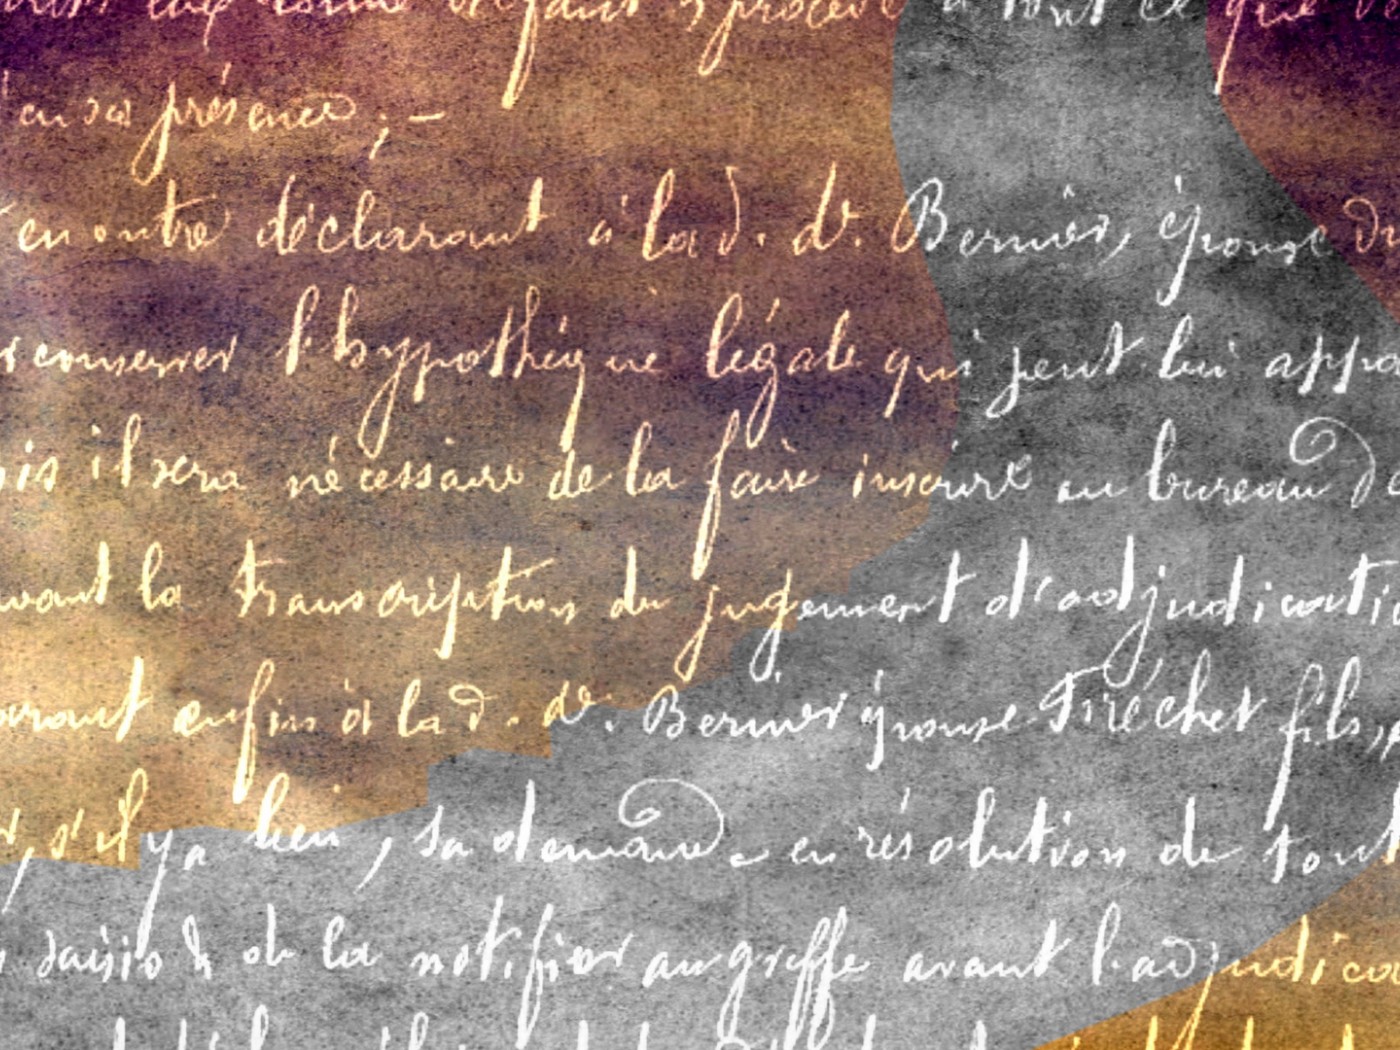 défaut procédé à tout ce que
en sa présence ; —
en outre déclarant à la d. de. Bernier, épouse
conserver l'hypothèque légale qui peut lui appa
il sera nécessaire de la faire inscrire au bureau de
avant la transcription du jugement d'adjudicatio
enfin à la d. de. Bernier épouse Fréchet fils,
s'il y a lieu, sa demande en résolution de tout
saisie & de la notifier au greffe avant l'adjudica